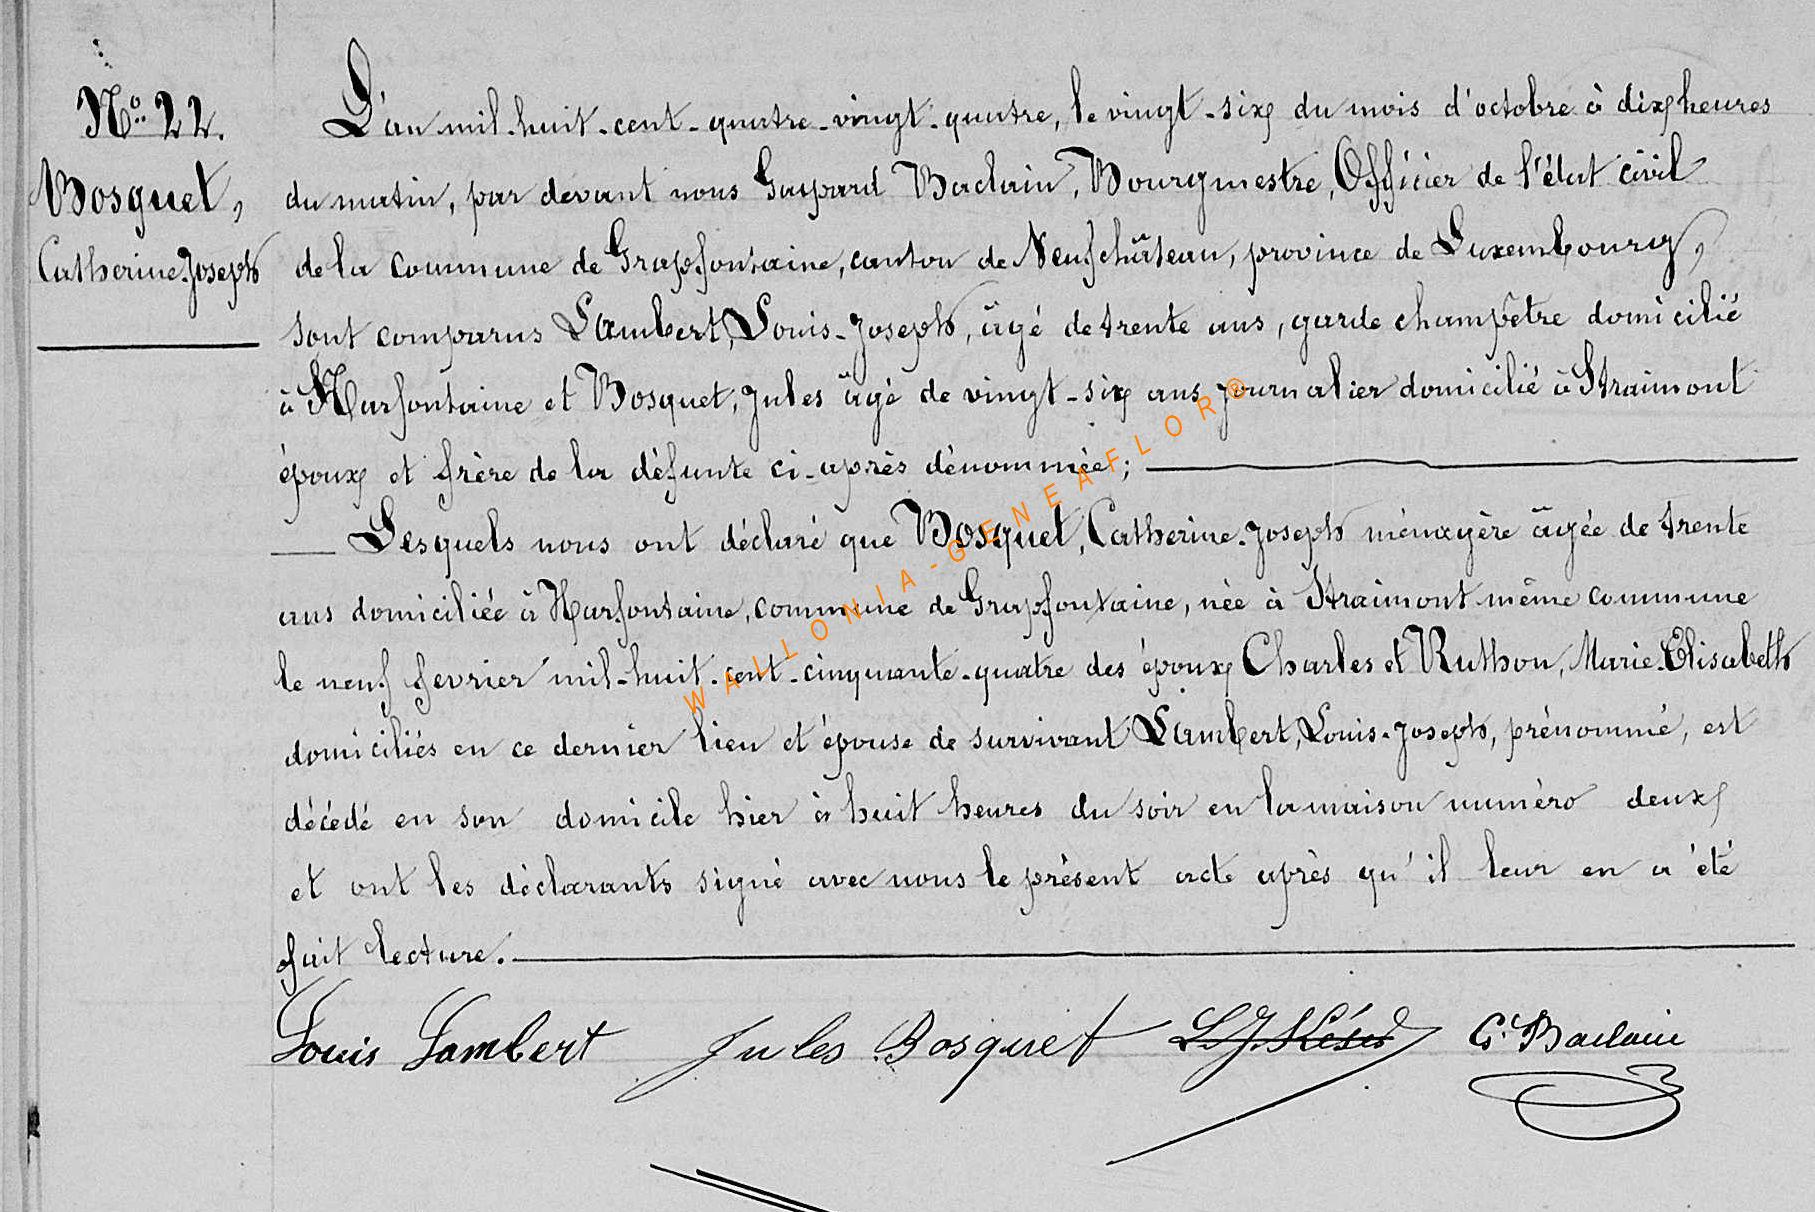 No. 22.
Bosquet,
Catherine-Joseph
L'an mil-huit-cent-quatre-vingt-quatre, le vingt-six du mois d'octobre à dix heures
du matin, par devant nous Gaspard Baclain, Bourgmestre, Officier de l'état civil
de la commune de Grapfontaine, canton de Neufchâteau, province de Luxembourg,
sont comparus Lambert, Louis-Joseph, âgé de trente ans, garde champêtre domicilié
à Harfontaine et Bosquet, Jules âgé de vingt-six ans journalier domicilié à Straimont
époux et frère de la défunte ci-après dénommée;
Lesquels nous ont déclaré que Bosquet, Catherine-Joseph ménagère âgée de trente
ans domiciliée à Harfontaine, commune de Grapfontaine, née à Straimont même commune
le neuf fevrier mil-huit-cent-cinquante-quatre des époux Charles et Ruthon, Marie-Elisabeth
domiciliés en ce dernier lieu et épouse de survivant Lambert, Louis-Joseph, prénommé, est
décédé en son domicile hier à huit heures du soir en la maison numéro deux
et ont les déclarants signé avec nous le présent acte après qu'il leur en a été
fait lecture.
Louis Lambert Jules Bosquet G. Baclain
WALLONIA-GENEAFLOR®